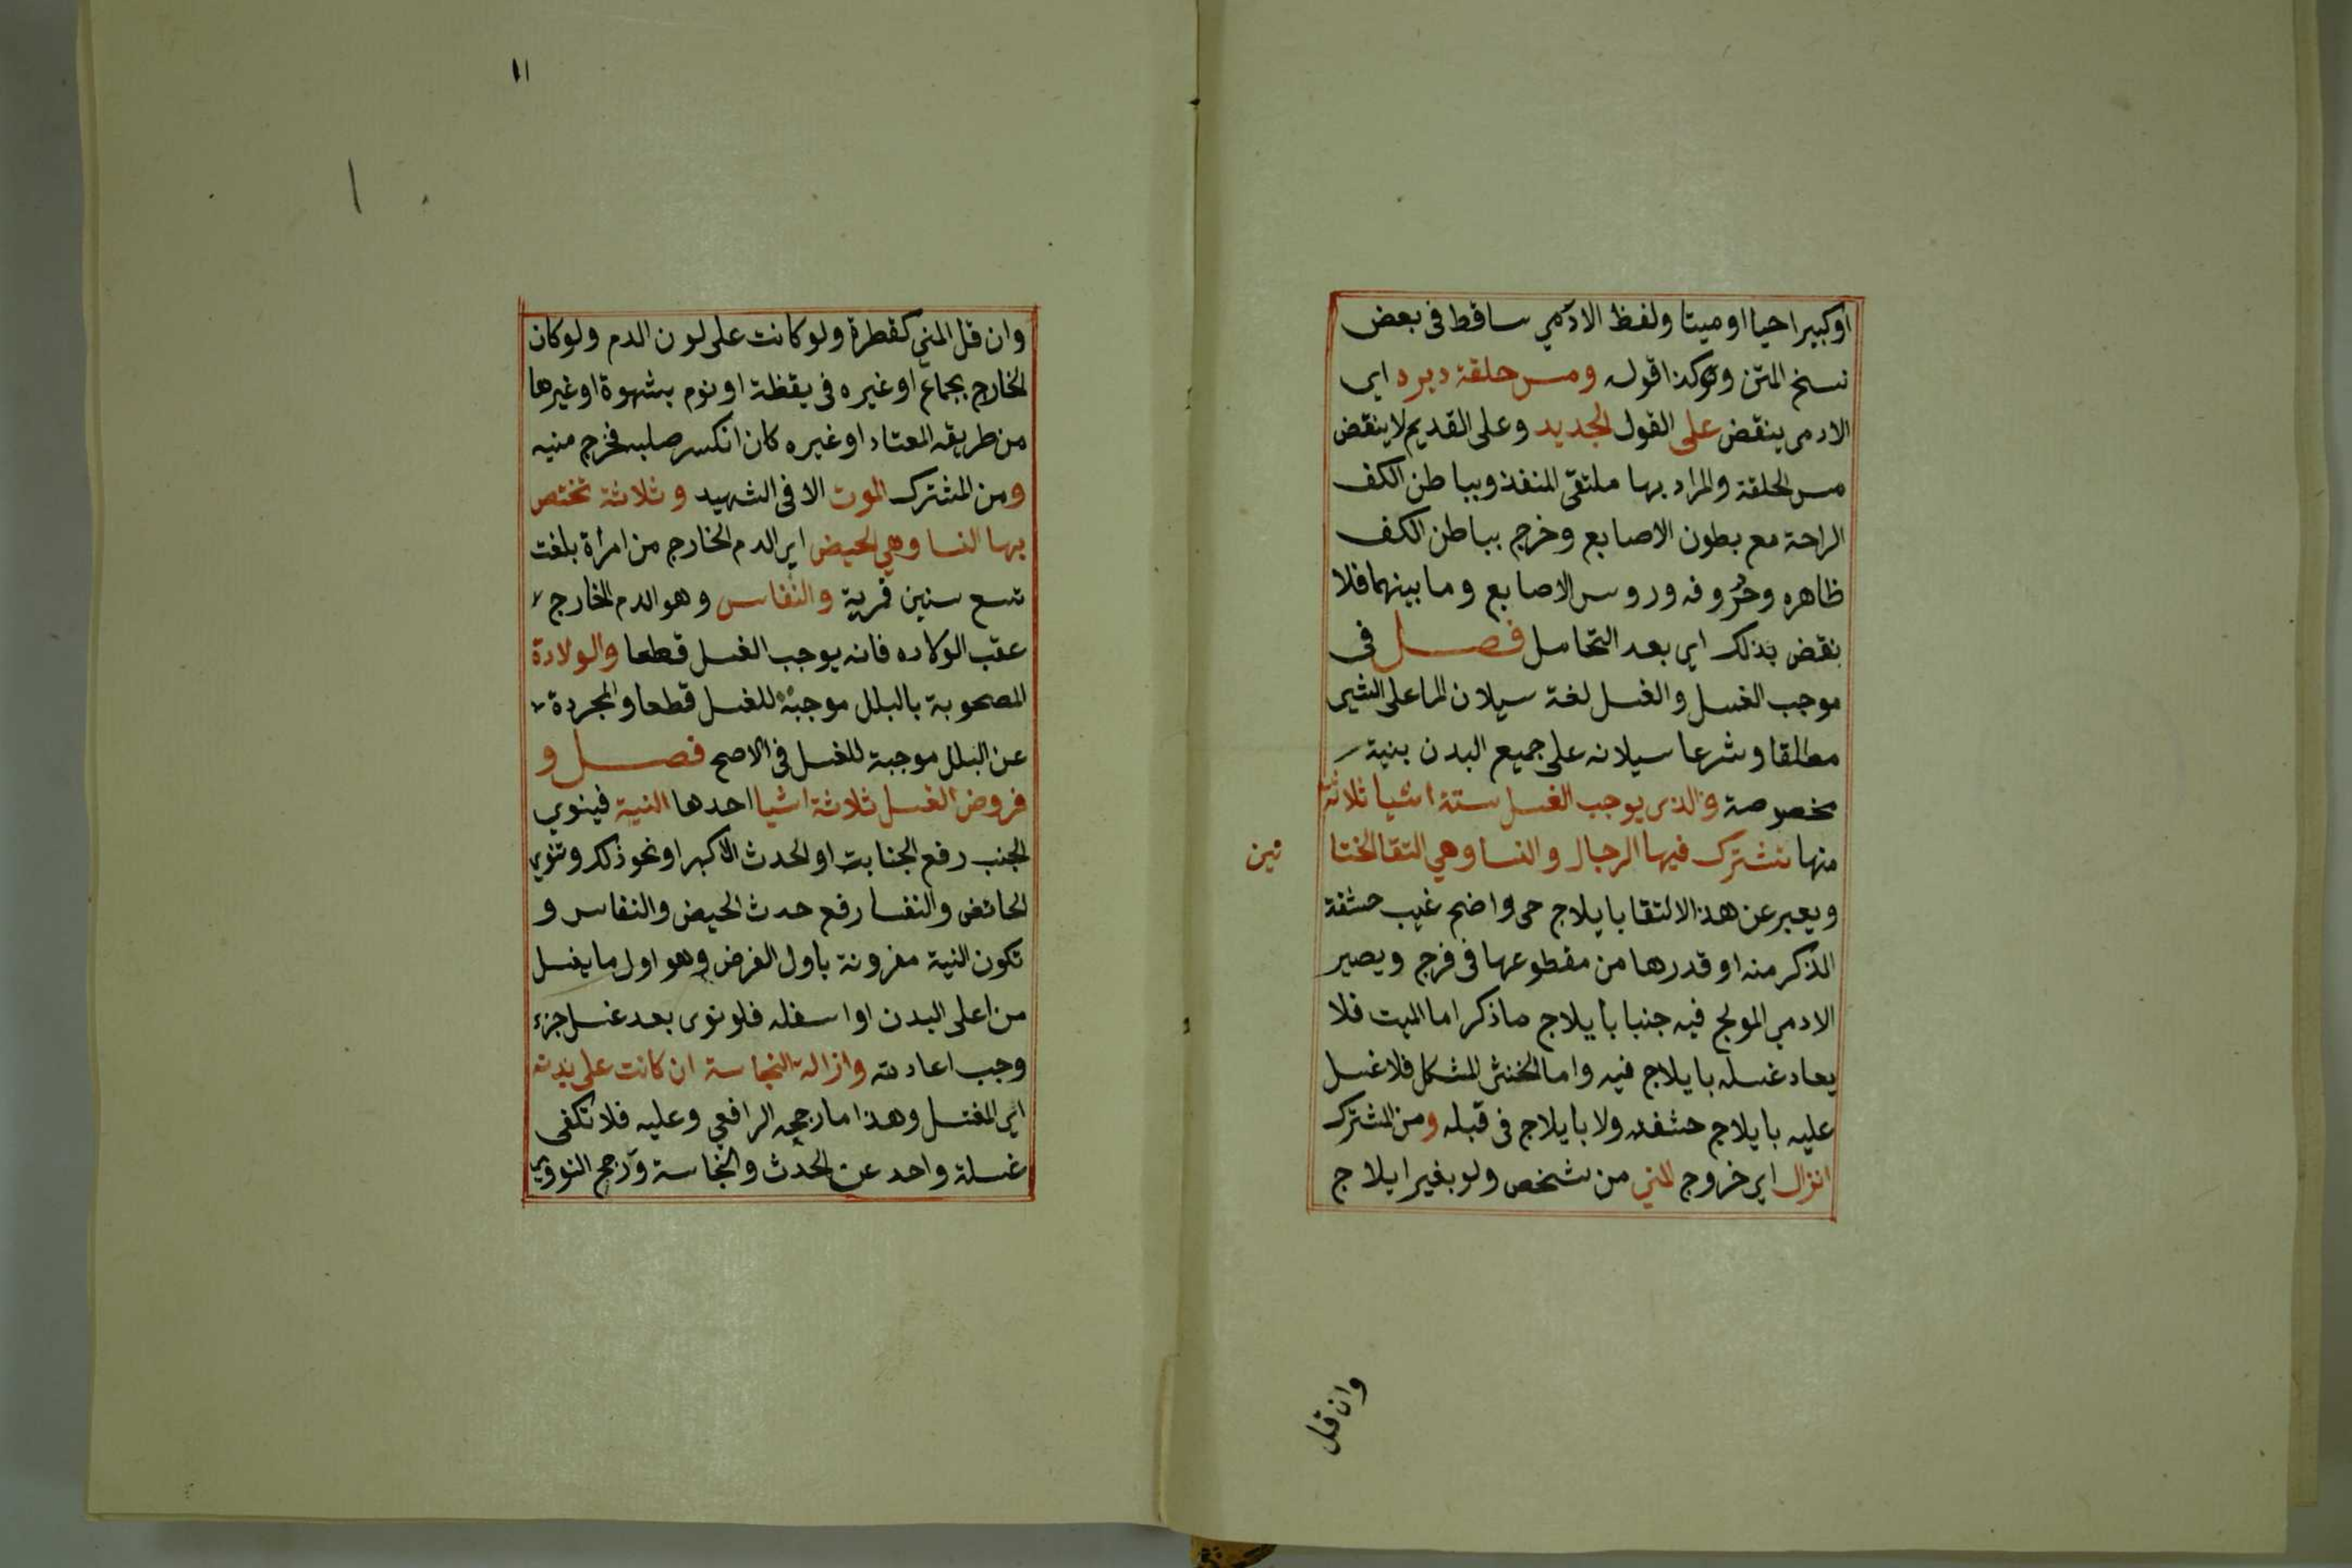 اوكبيرا حيا او ميتا ولفظ الادمي ساقط فى بعض
نسخ المتن وكذا قوله ومس حلقة دبره اي
الادمى ينقض على القول الجديد وعلى القديم لا ينقض
مس الحلقة والمراد بها ملتقى المنفذ وبباطن الكف
الراحة مع بطون الاصابع وخرج بباطن الكف
ظاهره وحروفه وروس الاصابع وما بينهما فلا
نقض بذلك اي بعد التحامل فصل فى
موجب الغسل والغسل لغة سيلان الما على الشي
مطلقا وشرعا سيلانه على جميع البدن بنية
مخصوصة والذى يوجب الغسل ستة اشيا ثلاثة
منها تشترك فيها الرجال والنسا وهي التقا الختا
نين
ويعبر عن هذا الالتقا بايلاج حى واضح غيب حشفة
الذكر منه او قدرها من مقطوعها فى فرج ويصير
الادمي المولج فيه جنبا بايلاج ماذكر اما الميت فلا
يعاد غسله بايلاج فيه واما الخنثى المشكل فلا غسل
عليه بايلاج حشفته ولا بايلاج فى قبله ومن المشترك
انزال اي خروج المني من شخص ولو بغير ايلاج
وان قل
١١
وان قل المني كقطرة ولو كانت على لون الدم ولو كان
الخارج بجماع او غيره فى يقظة او نوم بشهوة او غيرها
من طريقه المعتاد او غيره كان انكسر صلبه فخرج منيه
ومن المشترك الموت الا فى الشهيد وثلاثة تختص
بها النسا وهي الحيض اي الدم الخارج من امرأة بلغت
تسع سنين قمرية والنفاس وهو الدم الخارج
عقب الولاده فانه يوجب الغسل قطعا والولادة
المصحوبة بالبلل موجبة للغسل قطعا والمجردة
عن البلل موجبة للغسل فى الاصح فصل و
فروض الغسل ثلاثة اشيا احدها النية فينوي
الجنب رفع الجنابت او الحدث الاكبر او نحو ذلك وتنوي
الحائض والنفسا رفع حدث الحيض والنفاس و
تكون النية مقرونة باول الفرض وهو اول ما يغسل
من اعلى البدن او اسفله فلو نوى بعد غسل جزء
وجب اعادته وازالة النجاسة ان كانت على بدنه
اي المغتسل وهذا ما رجحه الرافعي وعليه فلا تكفى
غسلة واحد عن الحدث والنجاسة ورجح النووي